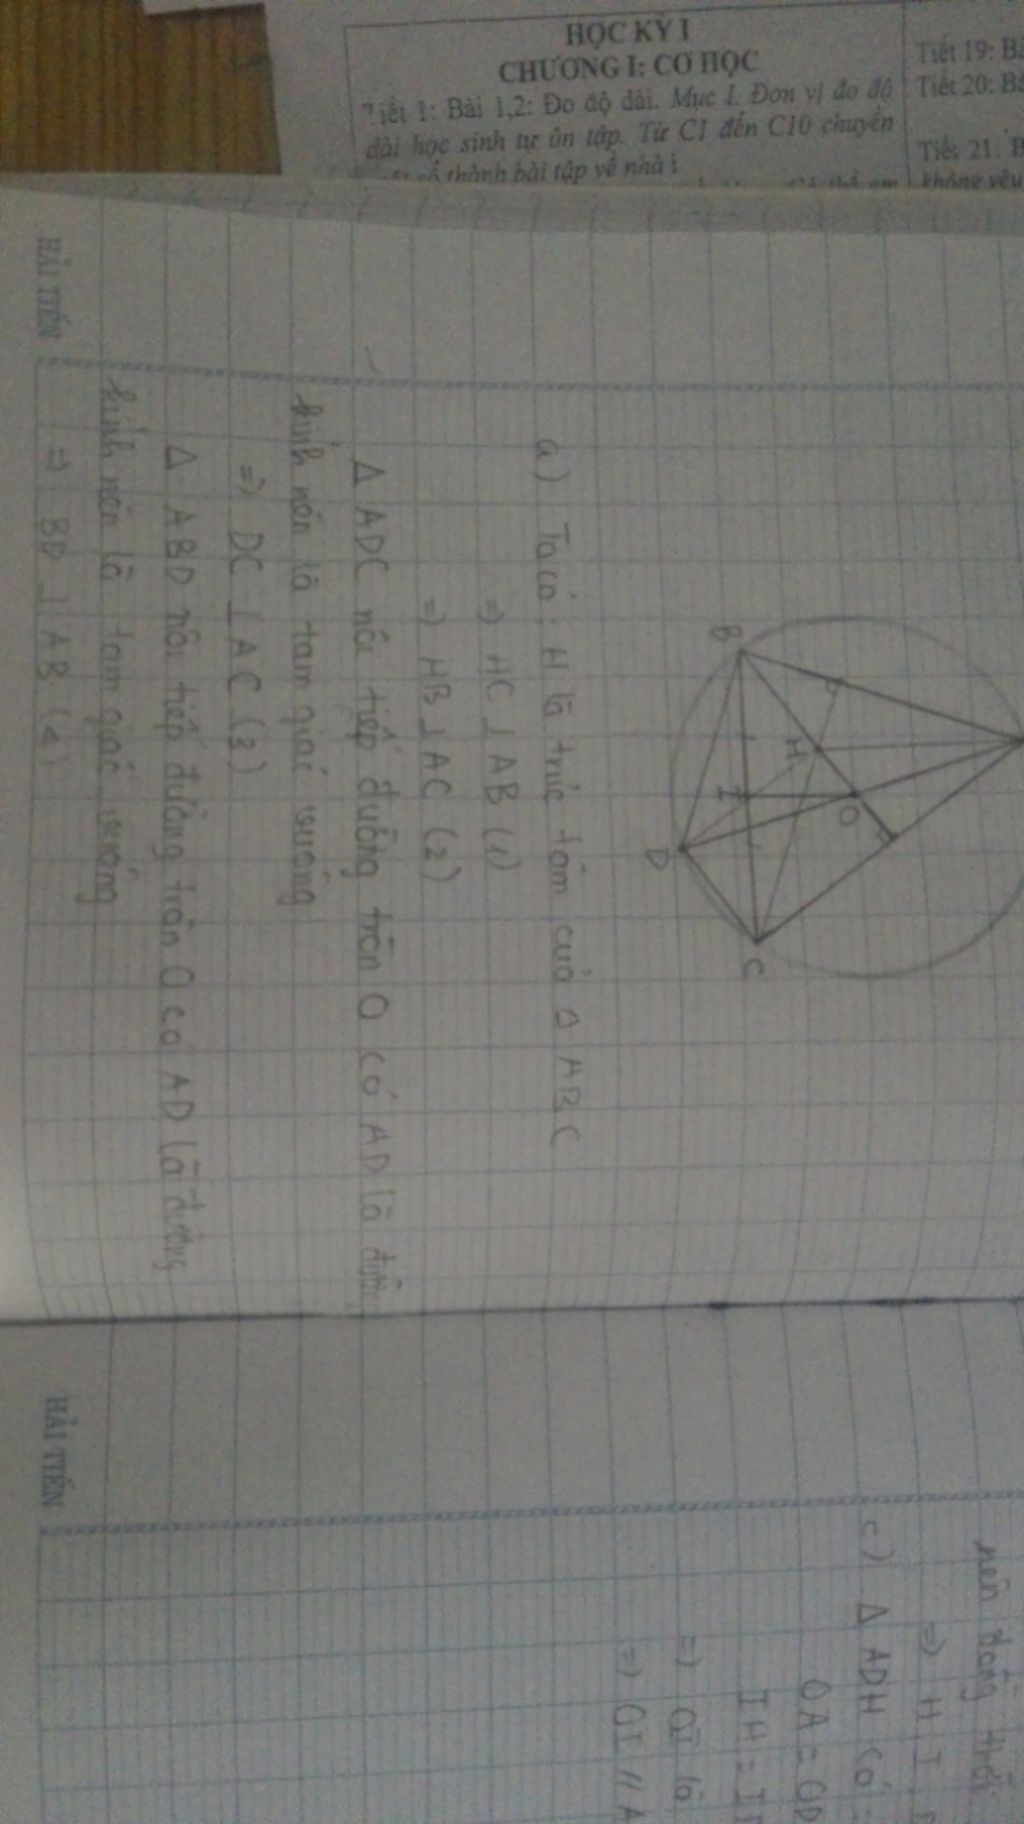 HỌC KỲ I
CHƯƠNG I: CƠ HỌC
Tiết 1: Bài 1,2: Đo độ dài. Mục I. Đơn vị đo độ
dài học sinh tự ôn tập. Từ C1 đến C10 chuyển
thành bài tập về nhà
Tiết 19:
Tiết 20:
Tiết 21:
không yêu
B
H
I
O
D
C
a) Ta có: H là trực tâm của Δ ABC
=> HC ⊥ AB (1)
=> HB ⊥ AC (2)
Δ ADC nội tiếp đường tròn O có AD là đường
kính nên là tam giác vuông
=> DC ⊥ AC (3)
Δ ABD nội tiếp đường tròn O có AD là đường
kính nên là tam giác vuông
=> BD ⊥ AB (4)
HẢI TIẾN
nên đồng thời
=> H I
c) Δ ADH có:
OA = OD
IH = I
=> OI là
=> OI // A
HẢI TIẾN